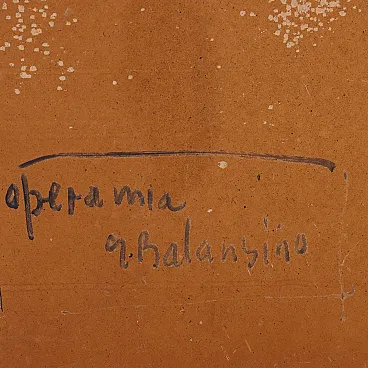 opera mia
G. Balansino